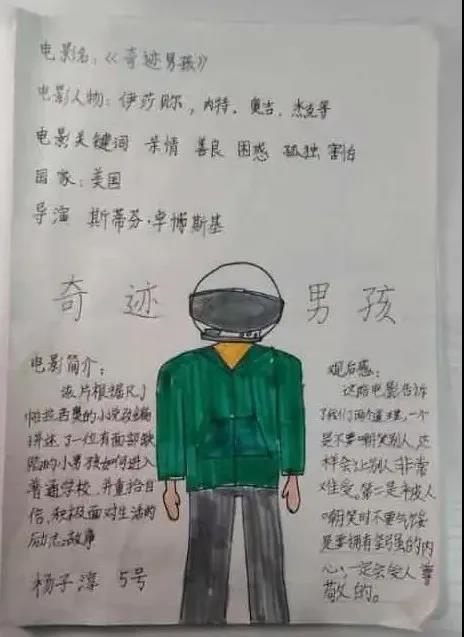 电影名：《奇迹男孩》
电影人物：伊莎贝尔，内特，奥吉、杰克等
电影关键词 亲情 善良 困惑 孤独 害怕
国家：美国
导演 斯蒂芬·卓博斯基
奇迹 男孩
电影简介：
该片根据R·J
帕拉西奥的小说改编
讲述了一位有面部缺
陷的小男孩如何进入
普通学校，并重拾自
信，积极面对生活的
励志故事
杨子淳 5号
观后感：
这部电影告诉
了我们两个道理，一个
是不要嘲笑别人，这
样会让别人非常
难受。第二是被人
嘲笑时不要气馁
是要拥有坚强的内
心，一定会受人尊
敬的。